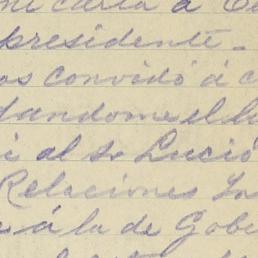 mi carta á
presidente_
os convidó á c
dandome el
i al Sr Lució
Relaciones In
e á la de Gobe